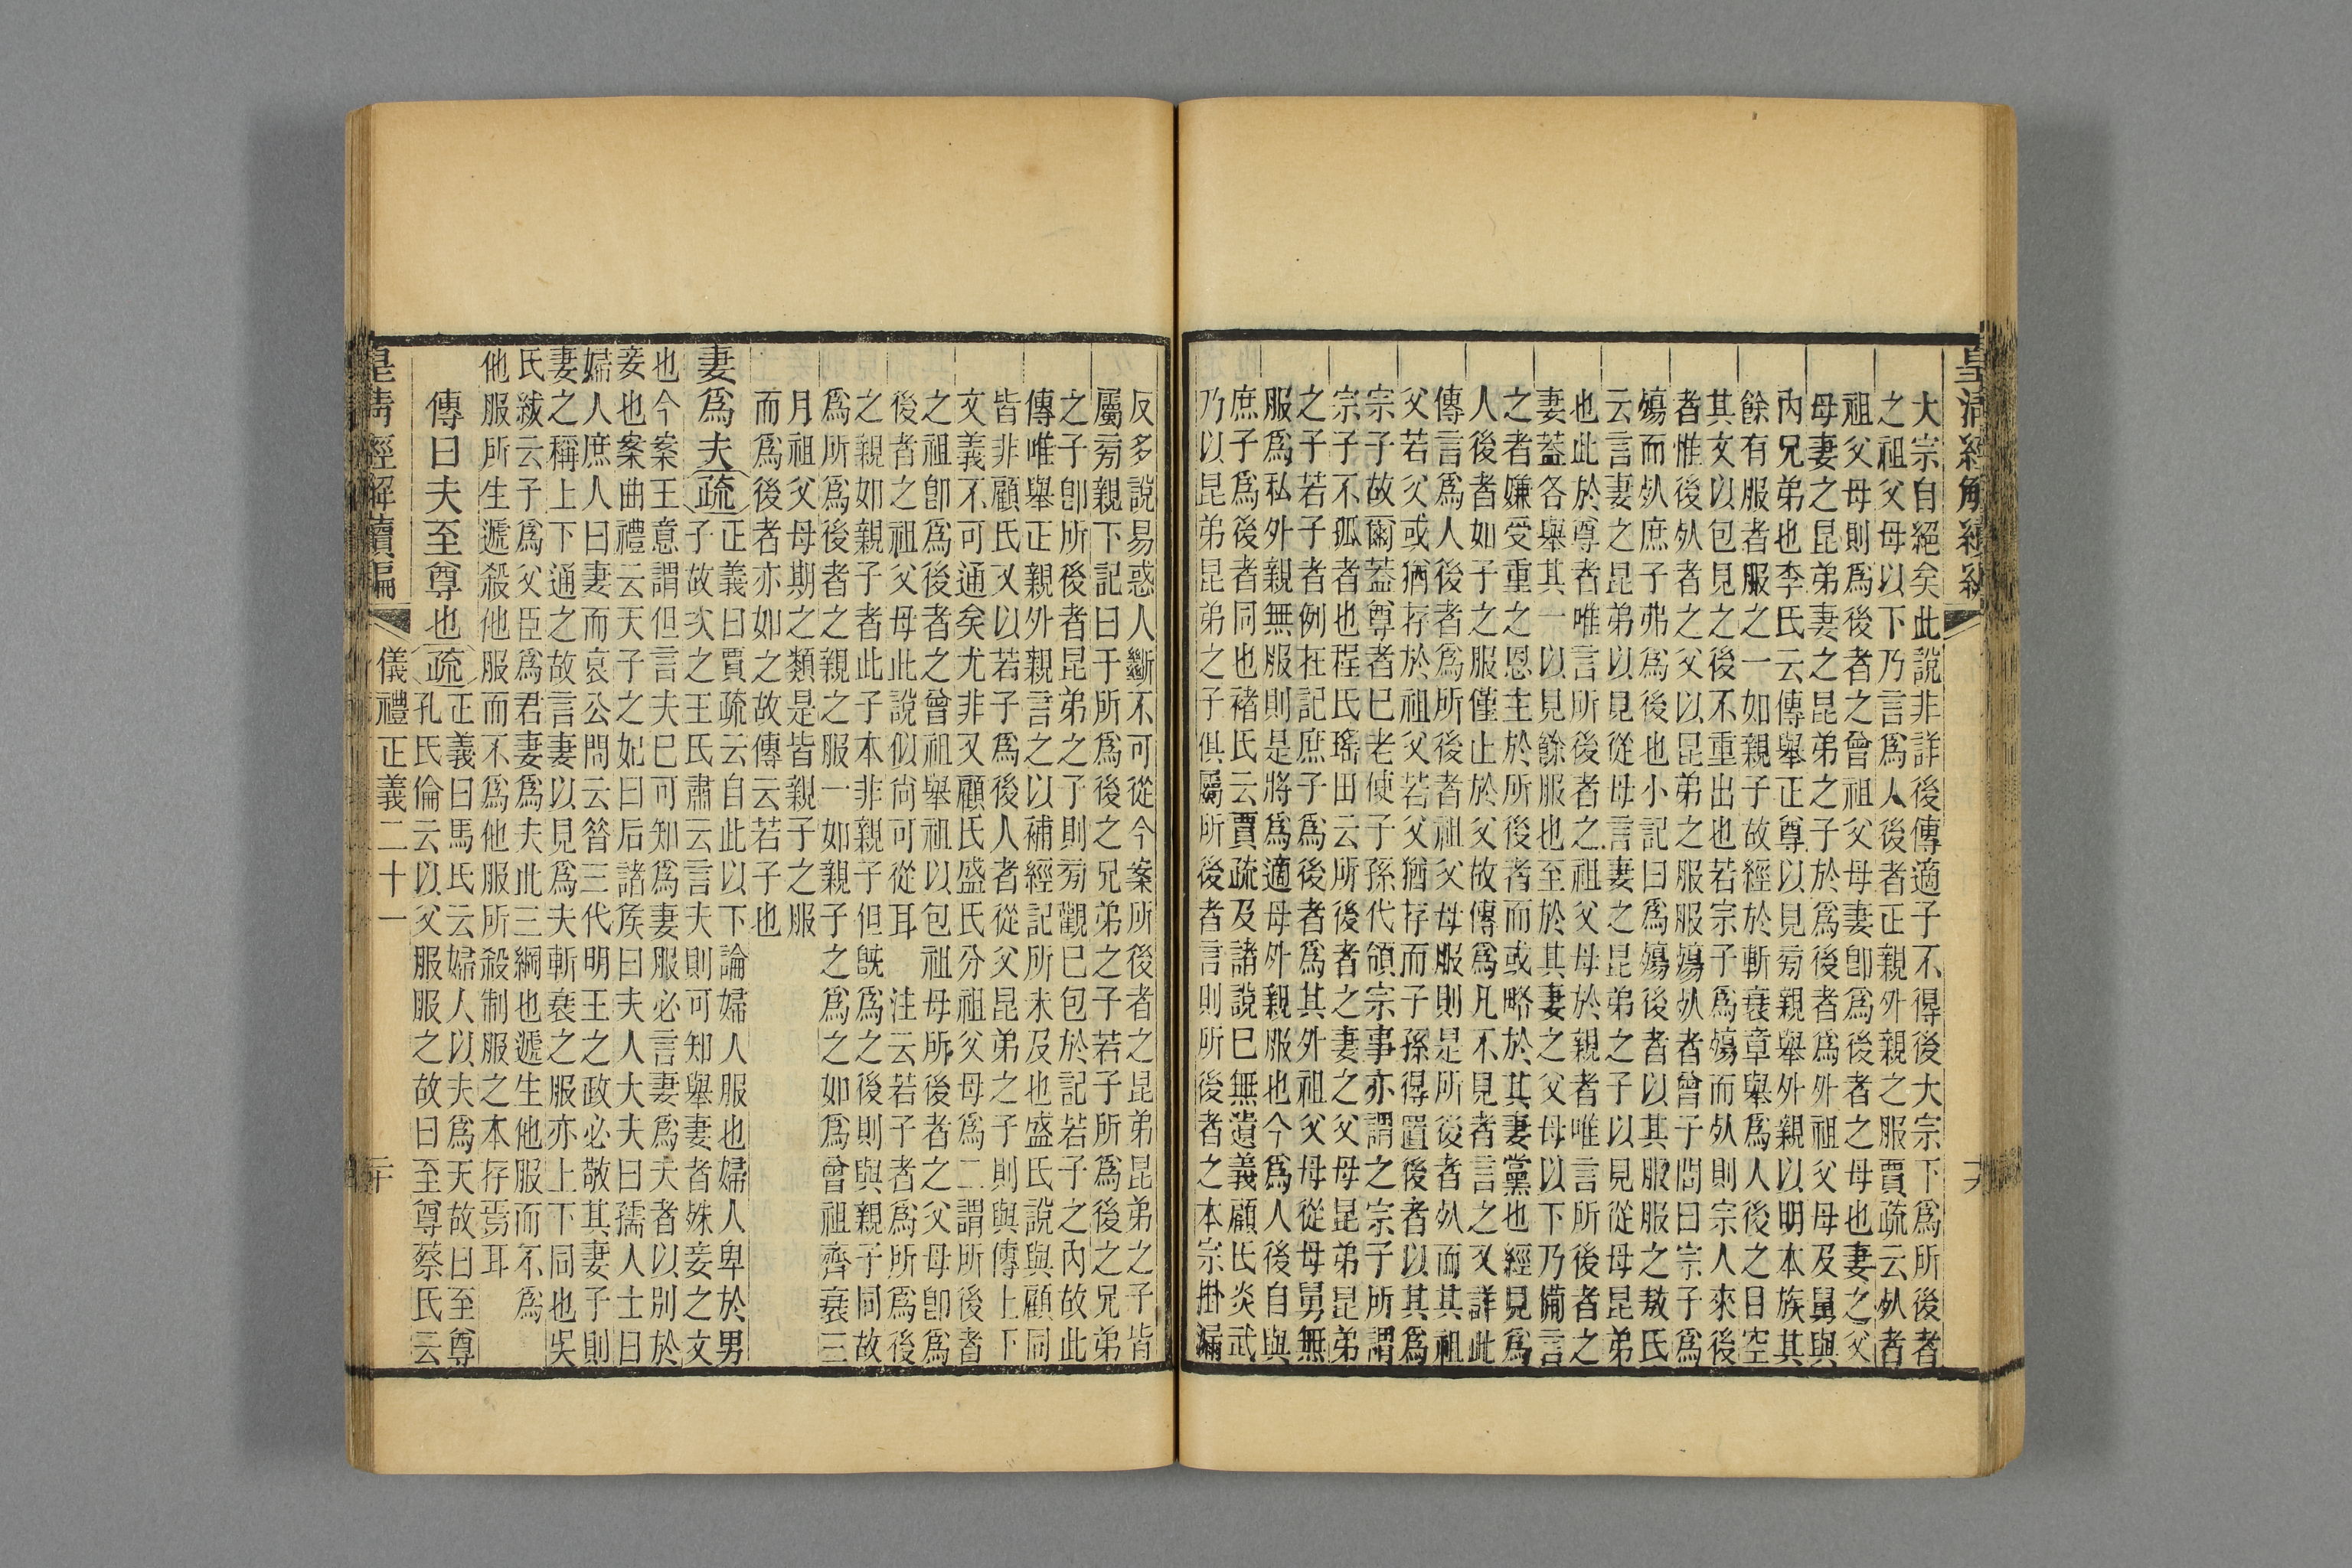 皇清經解續編
大宗自絕矣此說非詳後傳適子不得後大宗下爲所後者
之祖父母以下乃言爲人後者正親外親之服賈疏云死者
祖父母則爲後者之曾祖父母妻卽爲後者之母也妻之父
母妻之昆弟妻之昆弟之子於爲後者爲外祖父母及舅與
內兄弟也李氏云傳舉正尊以見旁親舉外親以明本族其
餘有服者服之一如親子故經於斬衰章舉爲人後之目空
其文以包見之後不重出也若宗子爲殤而死則宗人來後
者惟後死者之父以昆弟之服服殤死者曾子問曰宗子爲
殤而死庶子弗爲後也小記曰爲殤後者以其服服之敖氏
云言妻之昆弟以見從母言妻之昆弟之子以見從母昆弟
也此於尊者唯言所後者之祖父母於親者唯言所後者之
妻蓋各舉其一以見餘服也至於其妻之父母以下乃備言
之者嫌受重之恩主於所後者而或略於其妻黨也經見爲
人後者如子之服僅止於父故傳爲凡不見者言之又詳此
傳言爲人後者爲所後者祖父母服則是所後者死而其祖
父若父或猶存於祖父若父猶存而子孫得置後者以其爲
宗子故爾蓋尊者已老使子孫代領宗事亦謂之宗子所謂
宗子不孤者也程氏瑤田云所後者之妻之父母昆弟昆弟
之子若子者例在記庶子爲後者爲其外祖父母從母舅無
服爲私外親無服則是將爲適母外親服也今爲人後自與
庶子爲後者同也褚氏云賈疏及諸說已無遺義顧氏炎武
乃以昆弟昆弟之子俱屬所後者言則所後者之本宗掛漏
反多說易惑人斷不可從今案所後者之昆弟昆弟之子皆
屬旁親下記曰于所爲後之兄弟之子若子所爲後之兄弟
之子卽所後者昆弟之子則旁觀已包於記若子之內故此
傳唯舉正親外親言之以補經記所未及也盛氏說與顧同
皆非顧氏又以若子爲後人者從父昆弟之子則與傳上下
文義不可通矣尤非又顧氏盛氏分祖父母爲二謂所後者
之祖卽爲後者之曾祖舉祖以包祖母所後者之父母卽爲
後者之祖父母此說似尚可從耳 注云若子者爲所爲後
之親如親子者此子本非親子但旣爲之後則與親子同故
爲所爲後者之親之服一如親子之爲之如爲曾祖齊衰三
月祖父母期之類是皆親子之服
而爲後者亦如之故傳云若子也
妻爲夫疏正義曰賈疏云自此以下論婦人服也婦人卑於男
子故次之王氏肅云言夫則可知舉妻者殊妾之文
也今案王意謂但言夫已可知爲妻服必言妻爲夫者以別於
妾也案曲禮云天子之妃曰后諸矦曰夫人大夫曰孺人士曰
婦人庶人曰妻而哀公問云昝三代明王之政必敬其妻子則
妻之稱上下通之故言妻以見爲夫斬衰之服亦上下同也吳
氏紱云子爲父臣爲君妻爲夫此三綱也遞生他服而不爲
他服所生遞殺他服而不爲他服所殺制服之本存焉耳
傳曰夫至尊也疏正義曰馬氏云婦人以夫爲天故曰至尊
孔氏倫云以父服服之故曰至尊蔡氏云
皇清經解續編
儀禮正義二十一
二十